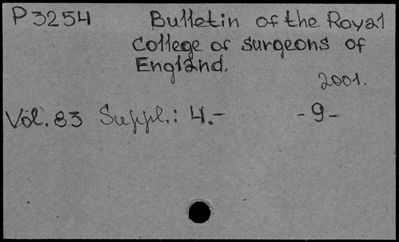 P3254 Bulletin of the Royal
College of Surgeons of
England.
2001.
Vol. 83 Suppl.: 4.- -9-